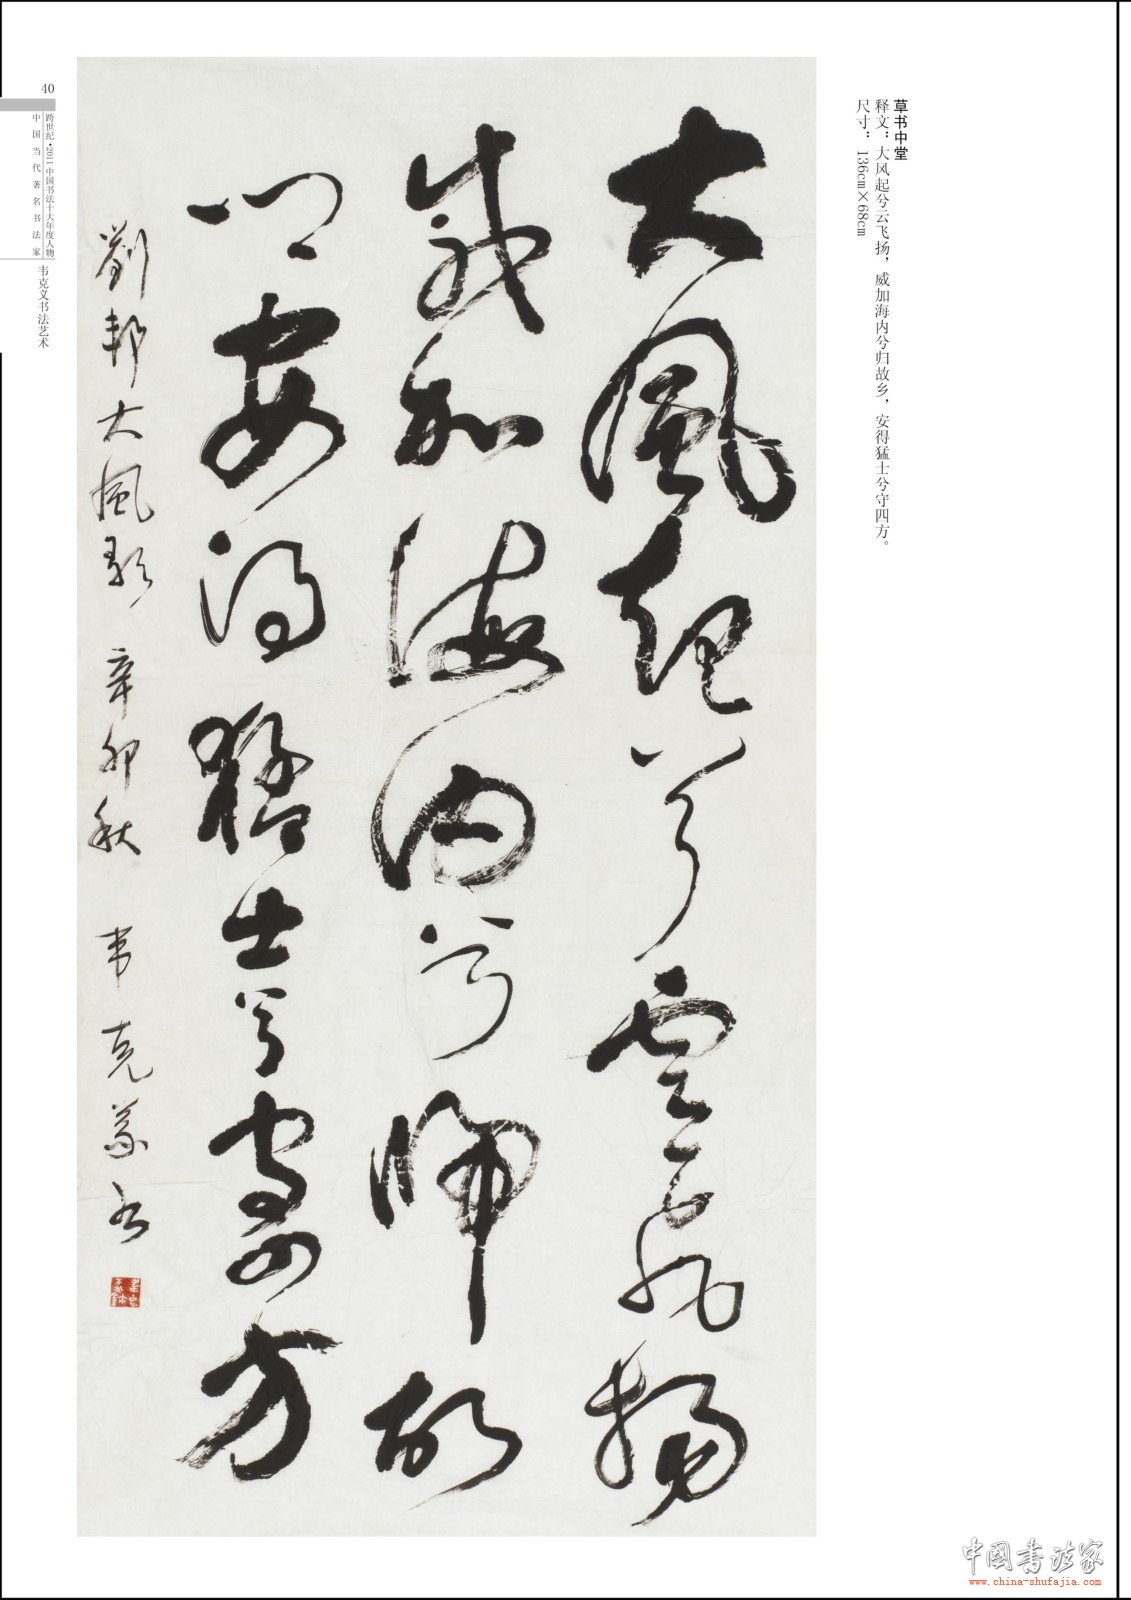 草书中堂
释文：大风起兮云飞扬，威加海内兮归故乡，安得猛士兮守四方。
尺寸：136cm×68cm
大風起兮雲飛揚
威加海内兮歸故
鄉安得猛士兮守四方
劉邦大風歌 辛卯秋 韋克義书
40
跨世纪•2011中国书法十大年度人物
中国当代著名书法家
韦克义书法艺术
中国書法家
www.china-shufajia.com